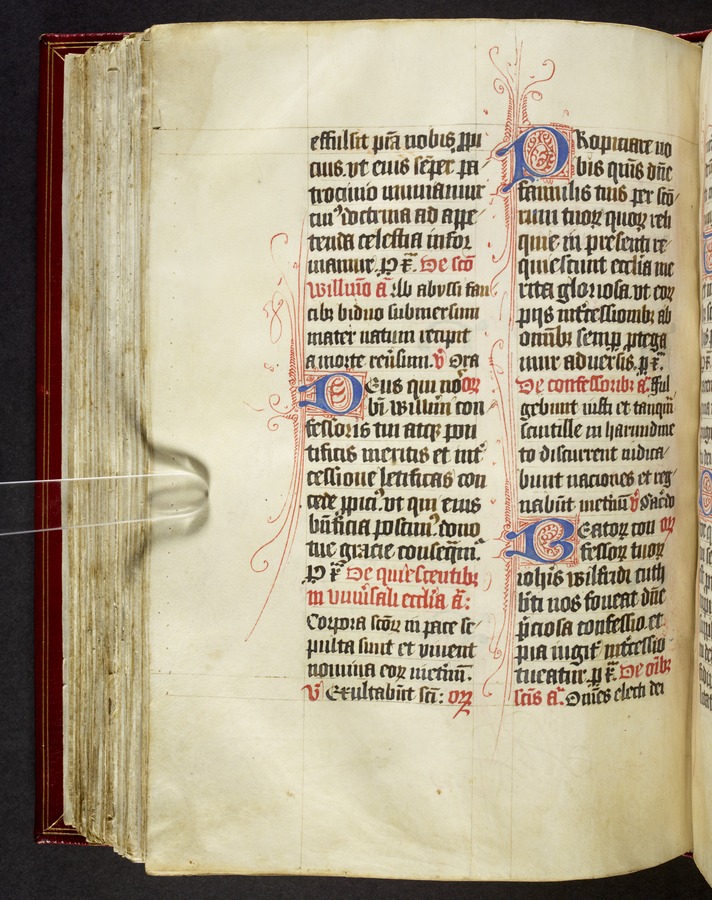 effulsit pīa nobis ꝓpi
cius. vt eius sēper pa
trocinio muniamur
cuiꝰ doctrina ad appe
tenda celestia infor
mamur. P xͬ. De scō
willm̄o a͞. Ab abyssi fau
cibꝫ biduo submersum
mater natum recipit
a morte reūsum. v̄ Ora
Deus qui noorꝫ
bī willm̄i con
fessoris tui atqꝫ pon
tificis meritis et int͛
cessione letificas con
cede ꝓpiciꝰ. vt qui eius
bn̄ficia poscimꝰ. dono
tue gracie consequm̄.
P xͬ De quiescentibꝫ
in vniūsali ecclīa a͞:
Corpora scōꝝ in pace se
pulta sunt et viuent
nomina eoꝝ inet͛nū.
v̄ Exultabūt scī: orꝫ
Propiciare no
bis quīs dn̄e
famulis tuis per scō
rum tuoꝝ quoꝝ reli
quie in presenti re
quiescunt ecclīa me
rita gloriosa. vt eoꝝ
piis int͛cessionibꝫ ab
omībꝫ semp ꝓtega
mur aduersis. p xͬ.
De confessoribꝫ a͞. Ful
gebunt iusti et tanqm̄
scintille in harundine
to discurrent iudica
bunt naciones et reg
nabūt inet͛nū v̄ Sac͛do
Beatoꝝ con orꝫ
fessoꝝ tuoꝝ
iohīs wilfridi cuth
bti nos foueat dn̄e
p̄ciosa confessio. et
pia iugit͛ int͛cessio
tueatur. p xͬ. De oībꝫ
scīs a͞. Omēs electi dei